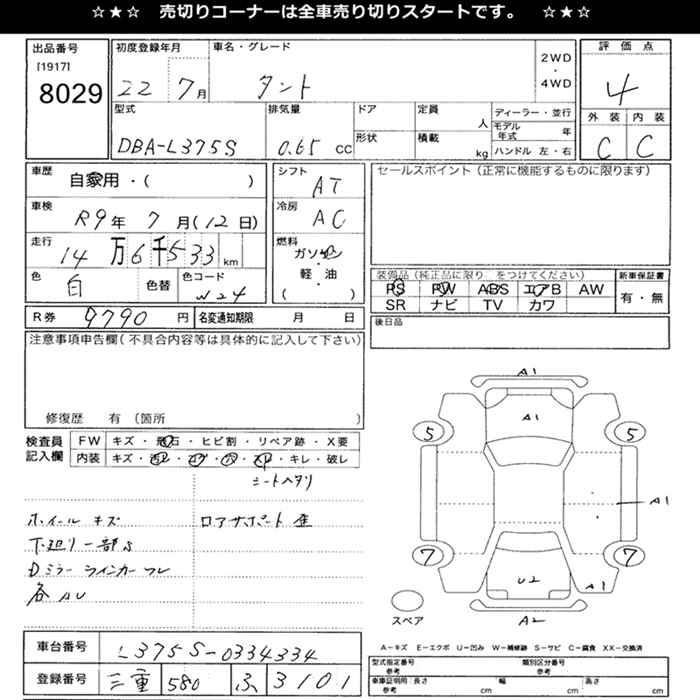 ☆★☆ 売切りコーナーは全車売り切りスタートです。 ☆★☆
出品番号
[1917]
8029
初度登録年月
22 7月
車名・グレード
タント
2WD
・
4WD
評価点
4
外装 内装
C C
型式
DBA-L375S
排気量
0.65 cc
ドア
形状
定員
人
積載
kg
ディーラー・並行
モデル年式 年
ハンドル 左・右
車歴
自家用・( )
車検
R9年 7月(12日)
走行
14万6千533km
色
白
色替
色コード
W24
シフト
AT
冷房
AC
燃料
ガソリン
・
軽・油
( )
セールスポイント(正常に機能するものに限ります)
装備品(純正品に限り をつけてください)
PS PW ABS エアB AW
SR ナビ TV カワ
新車保証書
有・無
後日品
R券 9790 円
名変通知期限 月 日
注意事項申告欄(不具合内容等は具体的に記入して下さい)
修復歴 有 (箇所 )
検査員
記入欄
FW キズ・飛石・ヒビ割・リペア跡・X要
内装 キズ・汚レ・コゲ・穴・スレ・キレ・破レ
シートヘタリ
ホイールキズ
ロアサポート歪
下廻リ一部S
Dミラーウインカーワレ
各AU
A1
A1
5 5
A1
7 7
U2
A1
A2
スペア
A-キズ E-エクボ U-凹み W-補修跡 S-サビ C-腐食 XX-交換済
車台番号
L375S-0334334
登録番号
三重 580 ふ 3101
型式指定番号
参考
類別区分番号
参考
車庫証明用 長さ
参考 cm
幅
cm
高さ
cm